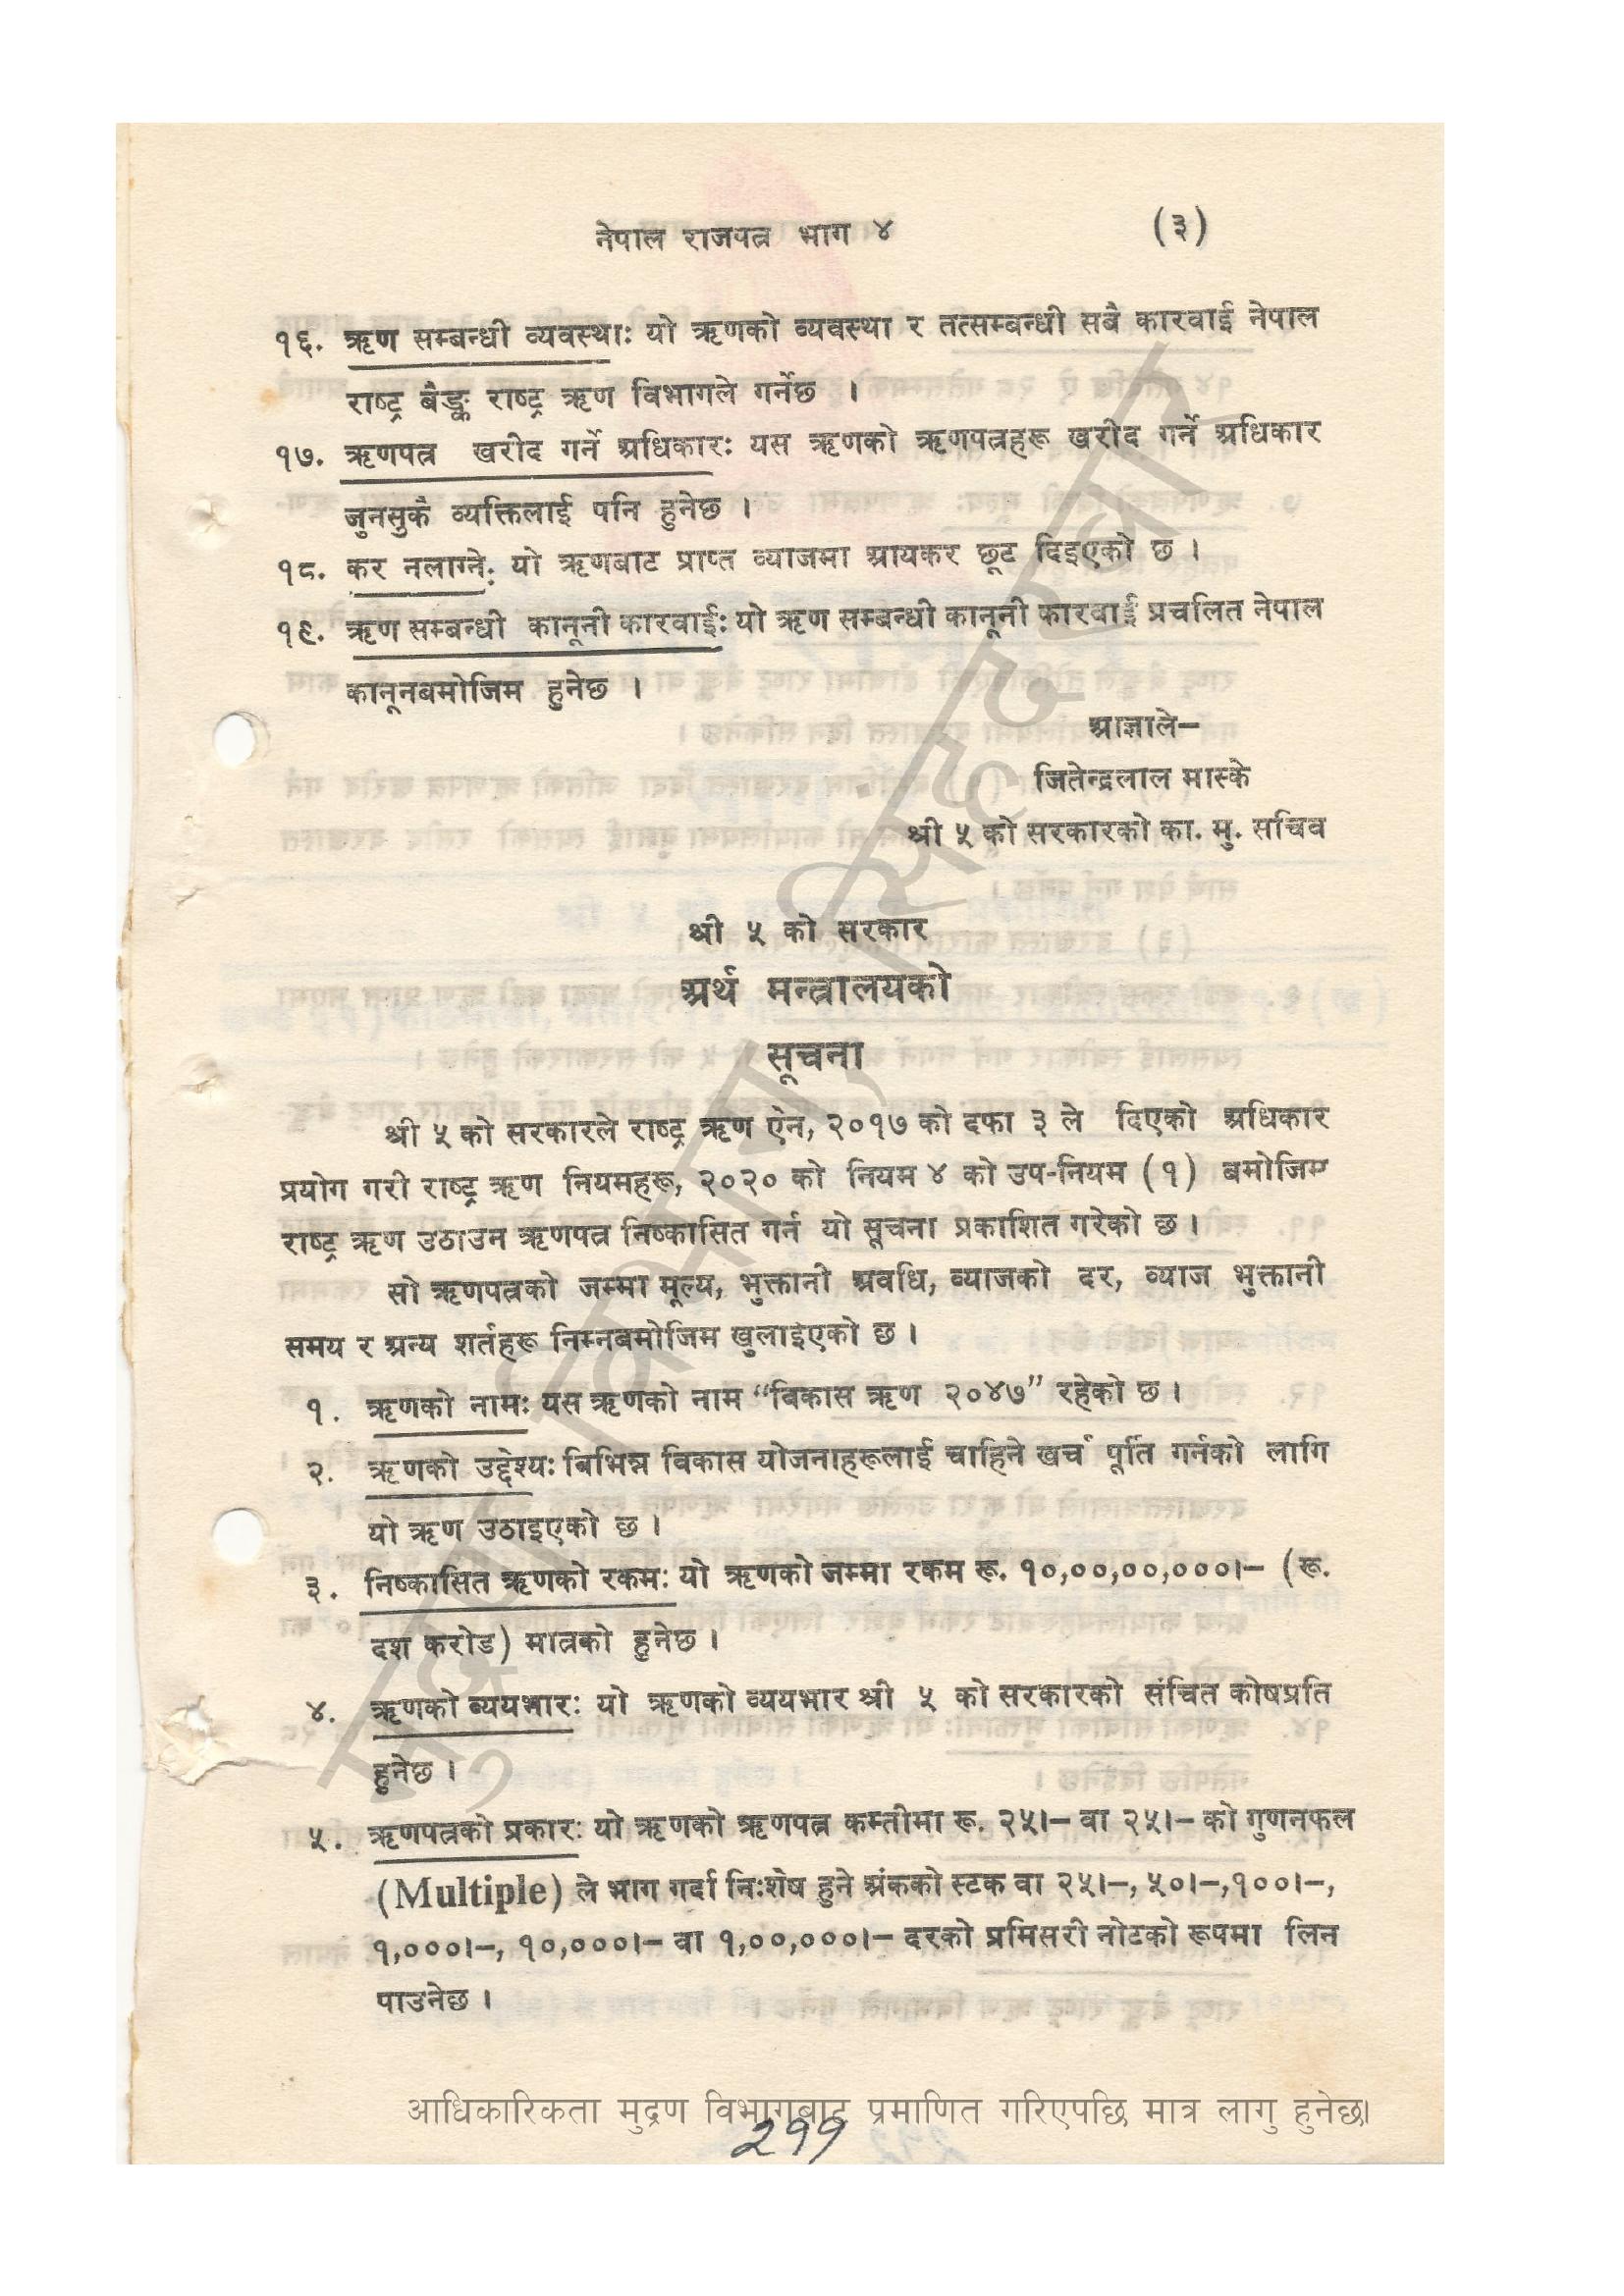 नेपाल राजपत्र भाग ४ (३)
१६. ऋण सम्बन्धी व्यवस्था: यो ऋणको व्यवस्था र तत्सम्बन्धी सबै कारवाई नेपाल
राष्ट्र बैङ्क राष्ट्र ऋण विभागले गर्नेछ ।
१७. ऋणपत्र खरीद गर्ने अधिकार: यस ऋणको ऋणपत्रहरू खरीद गर्ने अधिकार
जुनसुकै व्यक्तिलाई पनि हुनेछ ।
१८. कर नलाग्ने: यो ऋणबाट प्राप्त व्याजमा आयकर छूट दिइएको छ ।
१९. ऋण सम्बन्धी कानूनी कारवाई: यो ऋण सम्बन्धी कानूनी कारवाई प्रचलित नेपाल
कानूनबमोजिम हुनेछ ।
आज्ञाले—
जितेन्द्रलाल मास्के
श्री ५ को सरकारको का. मु. सचिव
श्री ५ को सरकार
अर्थ मन्त्रालयको
सूचना
श्री ५ को सरकारले राष्ट्र ऋण ऐन, २०१७ को दफा ३ ले दिएको अधिकार
प्रयोग गरी राष्ट्र ऋण नियमहरू, २०२० को नियम ४ को उप-नियम (१) बमोजिम
राष्ट्र ऋण उठाउन ऋणपत्र निष्कासित गर्न यो सूचना प्रकाशित गरेको छ ।
सो ऋणपत्रको जम्मा मूल्य, भुक्तानी अवधि, व्याजको दर, व्याज भुक्तानी
समय र अन्य शर्तहरू निम्नबमोजिम खुलाइएको छ ।
१. ऋणको नाम: यस ऋणको नाम “बिकास ऋण २०४७” रहेको छ ।
२. ऋणको उद्देश्य: बिभिन्न विकास योजनाहरूलाई चाहिने खर्च पूर्ति गर्नको लागि
यो ऋण उठाइएको छ ।
३. निष्कासित ऋणको रकम: यो ऋणको जम्मा रकम रू. १०,००,००,०००।— (रू.
दश करोड) मात्रको हुनेछ ।
४. ऋणको व्ययभार: यो ऋणको व्ययभार श्री ५ को सरकारको संचित कोषप्रति
हुनेछ ।
५. ऋणपत्रको प्रकार: यो ऋणको ऋणपत्र कम्तीमा रू. २५।— वा २५।— को गुणनफल
(Multiple) ले भाग गर्दा निःशेष हुने अंकको स्टक वा २५।—, ५०।—,१००।—,
१,०००।—, १०,०००।— वा १,००,०००।— दरको प्रमिसरी नोटको रूपमा लिन
पाउनेछ ।
मुद्रण विभाग, सिंहदरबार
आधिकारिकता मुद्रण विभागबाट प्रमाणित गरिएपछि मात्र लागु हुनेछ।
२११